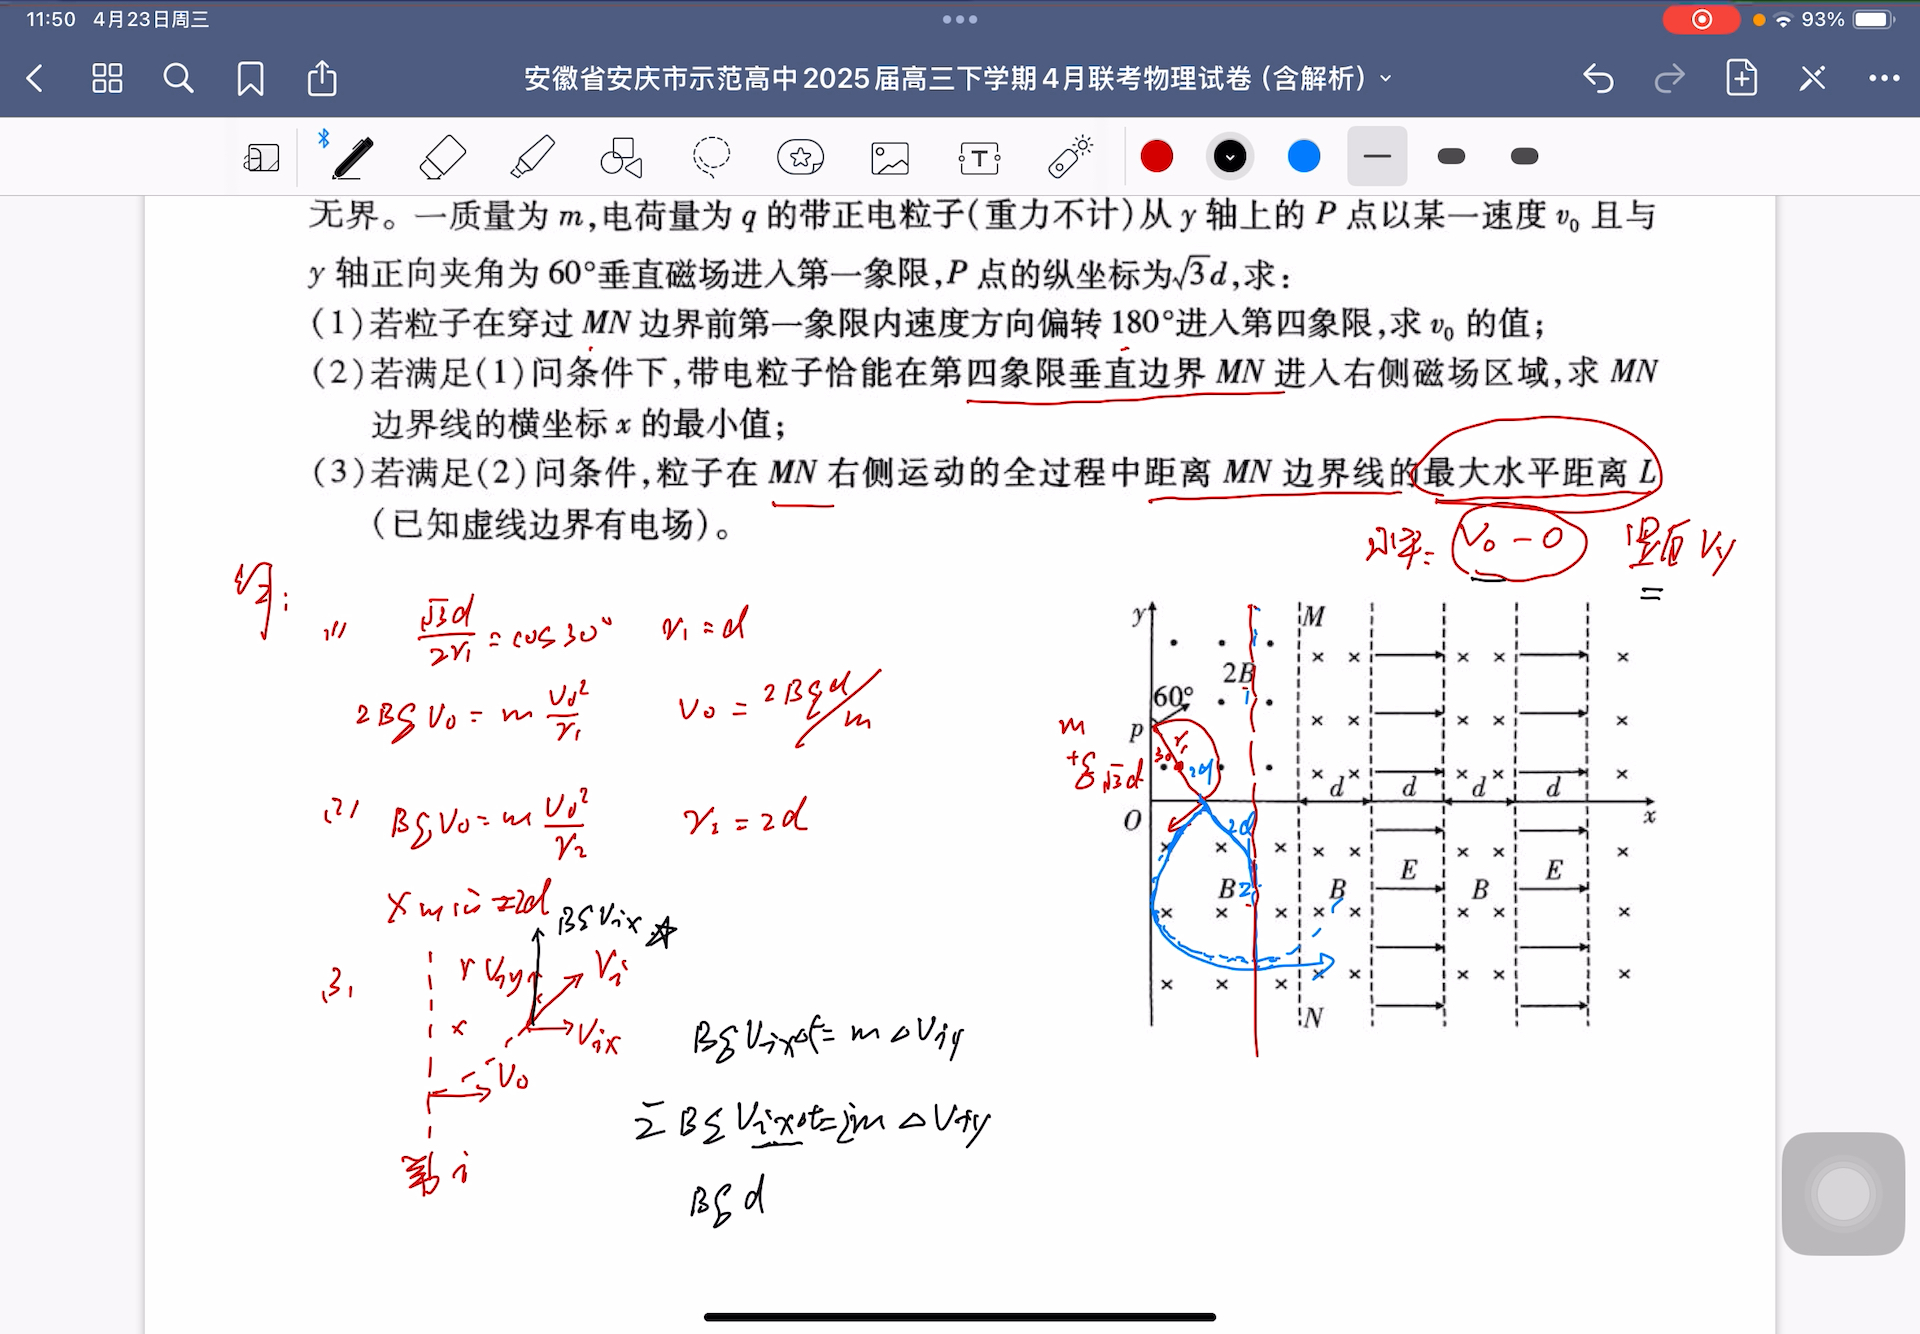 11:50 4月23日周三
93%
安徽省安庆市示范高中2025届高三下学期4月联考物理试卷（含解析）
无界。一质量为 m,电荷量为 q 的带正电粒子(重力不计)从 y 轴上的 P 点以某一速度 v₀ 且与
y 轴正向夹角为 60°垂直磁场进入第一象限,P 点的纵坐标为√3d,求:
(1)若粒子在穿过 MN 边界前第一象限内速度方向偏转 180°进入第四象限,求 v₀ 的值;
(2)若满足(1)问条件下,带电粒子恰能在第四象限垂直边界 MN 进入右侧磁场区域,求 MN
边界线的横坐标 x 的最小值;
(3)若满足(2)问条件,粒子在 MN 右侧运动的全过程中距离 MN 边界线的最大水平距离 L
(已知虚线边界有电场)。
水平: V₀ - 0 竖直 Vy
=
解:
(1) √3d/2r₁ = cos30° r₁ = d
2BqV₀ = m V₀²/r₁ V₀ = 2Bqd/m
(2) BqV₀ = m V₀²/r₂ r₂ = 2d
Xmin = 2d
BqVix
(3) Viy Vi
x Vix
V₀
第 i
BqVixΔt = mΔViy
Σ BqVixΔt = Σm ΔViy
Bqd
y M
2B
60°
m P r₁
+q √3d 30 2d
d d d d
O x
2d
B 2 B E B E
N